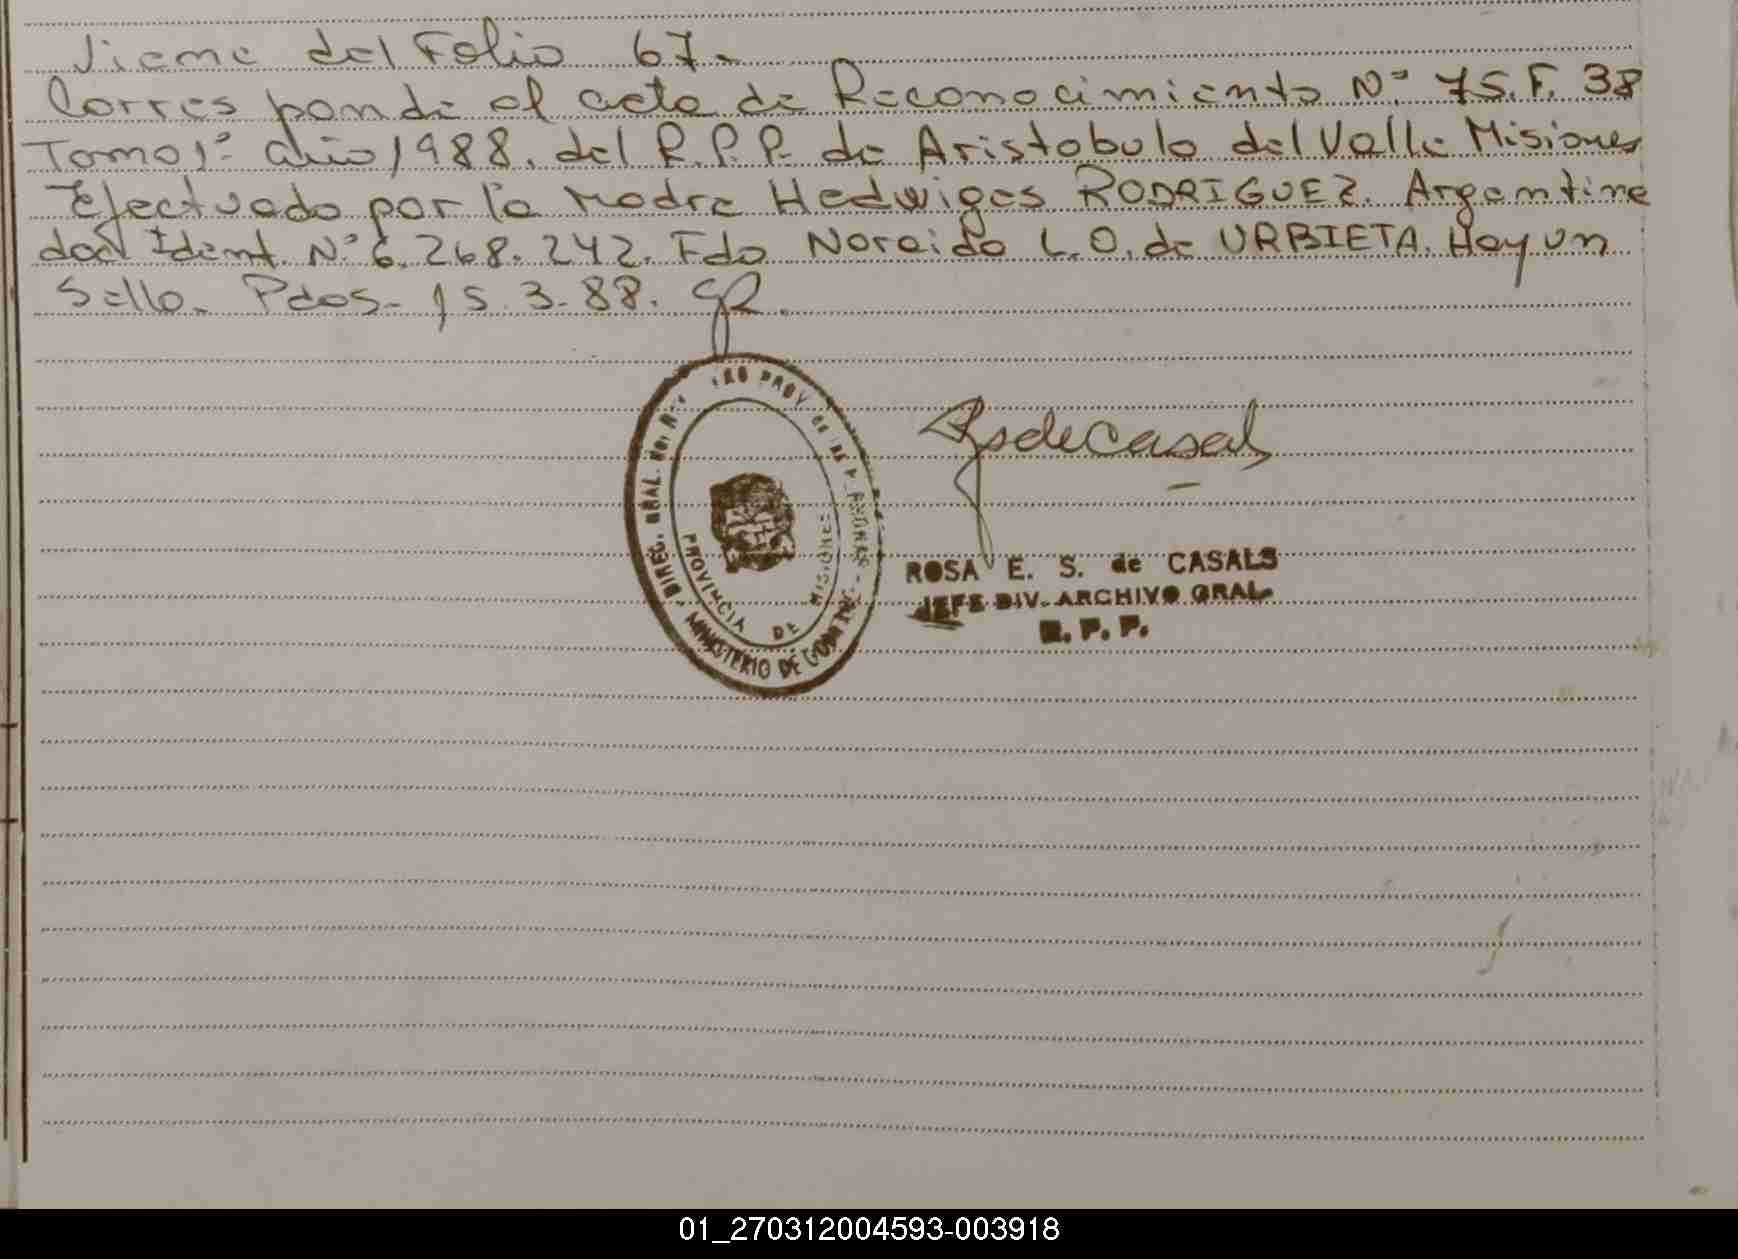 Viene del Folio 67-
Corresponde al acta de Reconocimiento Nº 75.F. 38
Tomo 1º año 1988. del R.P.P. de Aristobulo del Valle Misiones
Efectuado por la Madre Hedwiges RODRIGUEZ. Argentina
doc Ident. Nº 6.268.242. Fdo Noraida L.O. de URBIETA. Hay un
Sello. Pdas- 15.3-88.
DIREC. GRAL. PROV. DE LAS PERSONAS
PROVINCIA DE MISIONES
MINISTERIO DE GOBIERNO
RsdeCasals
ROSA E. S. de CASALS
JEFE DIV. ARCHIVO GRAL.
R. P. P.
01_270312004593-003918